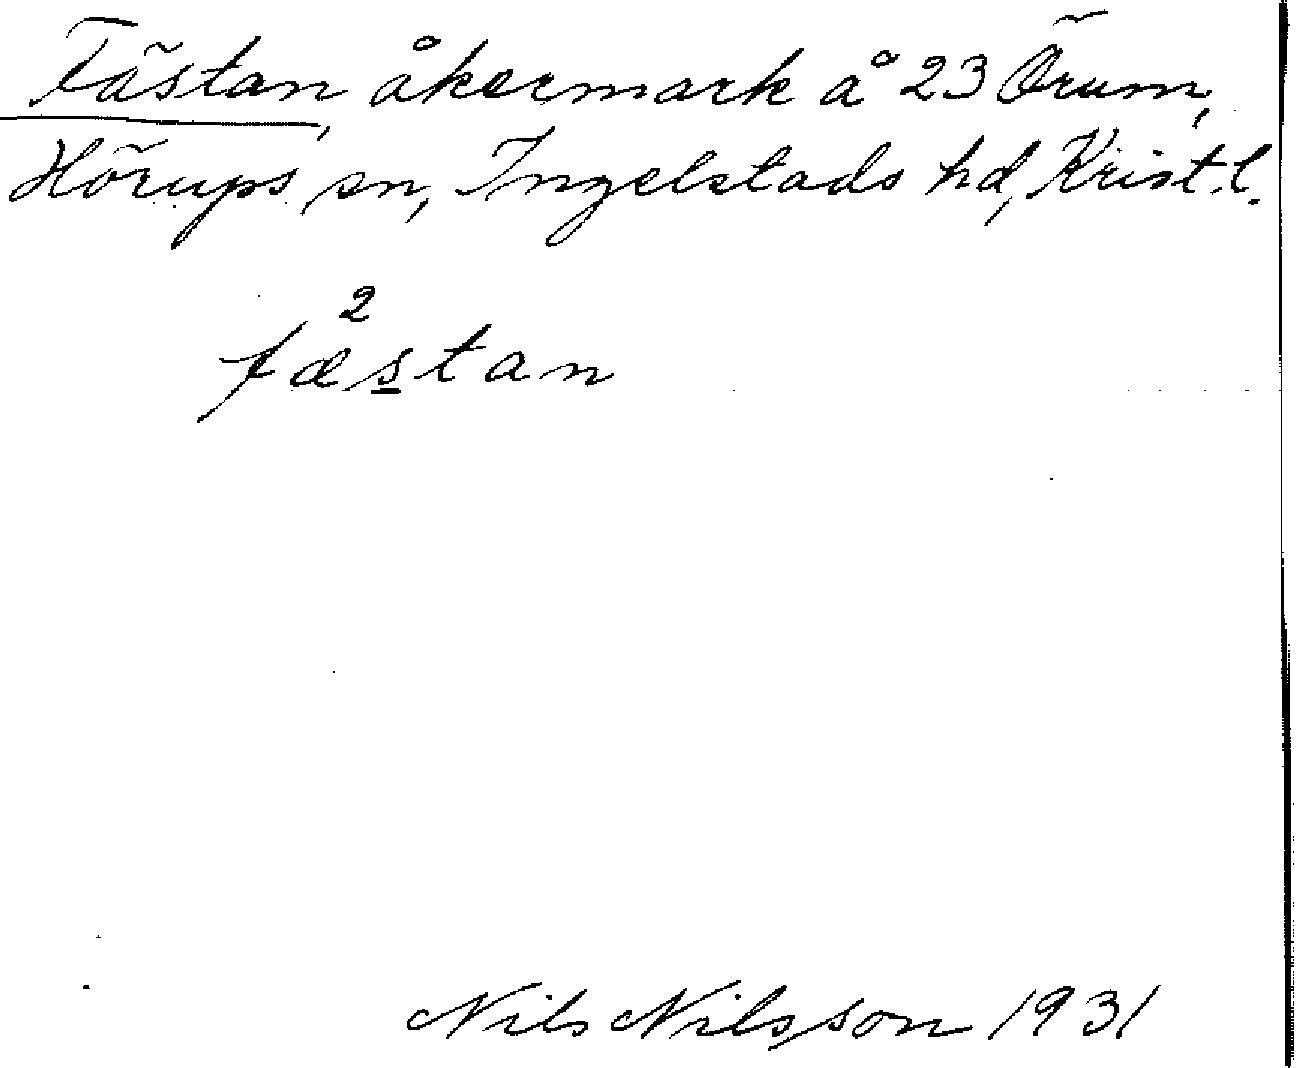 Fästan, åkermark å 23 Örum,
Hörups sn, Ingelstads hd, Krist.l.
2
fæstan
Nils Nilsson 1931